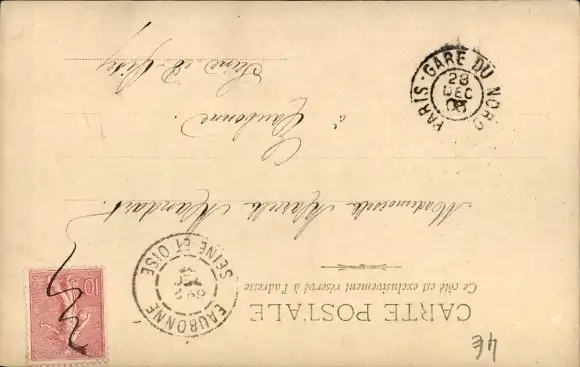 CARTE POSTALE
Ce côté est exclusivement réservé à l'adresse
Mademoiselle Marcelle
à Eaubonne
Seine et Oise
PARIS - GARE DU NORD
28
DEC
03
EAUBONNE
SEINE-ET-OISE
10
4€